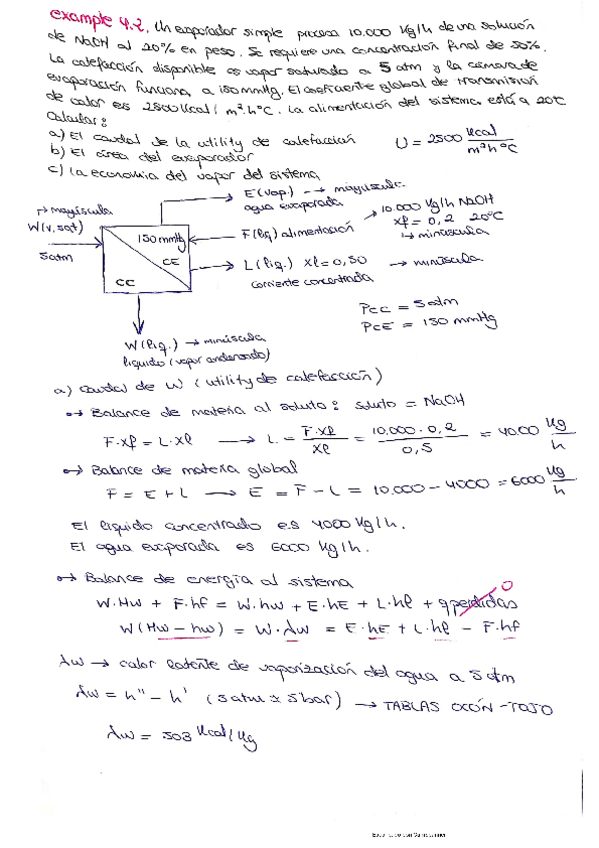 example 4.2. Un evaporador simple procesa 10.000 Kg/h de una solución
de NaOH al 20% en peso. Se requiere una concentración final de 50%.
La calefacción disponible es vapor saturado a 5 atm y la cámara de
evaporación funciona a 150 mmHg. El coeficiente global de transmisión
de calor es 2500 Kcal/m²h°C. La alimentación del sistema está a 20°C
Calcular:
a) El caudal de la utility de calefacción
b) El área del evaporador
c) La economía del vapor del sistema
U = 2500 Kcal/m²h°C
mayúscula
W(v,sat)
5 atm
150 mmHg
CE
CC
E (vap.) → mayúscula
agua evaporada
F (líq) alimentación
10.000 Kg/h NaOH
xf = 0,2 20°C
minúscula
L (líq.) xl = 0,50 → minúscula
corriente concentrada
Pcc = 5 atm
PCE = 150 mmHg
W (líq.) → minúscula
líquido (vapor condensado)
a) Caudal de W (utility de calefacción)
Balance de materia al soluto: soluto = NaOH
F·xf = L·xl → L = F·xf / xl = 10.000 · 0,2 / 0,5 = 4000 Kg/h
Balance de materia global
F = E + L → E = F - L = 10.000 - 4000 = 6000 Kg/h
El líquido concentrado es 4000 Kg/h.
El agua evaporada es 6000 Kg/h.
Balance de energía al sistema
W·Hw + F·hf = W·hw + E·hE + L·hl + qperdidas 0
W(Hw - hw) = W·λw = E·hE + L·hl - F·hf
λw → calor latente de vaporización del agua a 5 atm
λw = h'' - h' (5 atm ≈ 5 bar) → TABLAS OCÓN-TOJO
λw = 503 Kcal/Kg